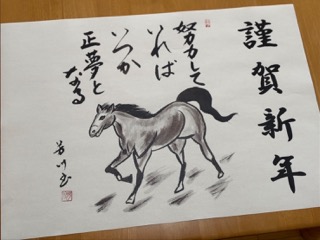 謹賀新年
努力して
いれば
いつか
正夢と
なる